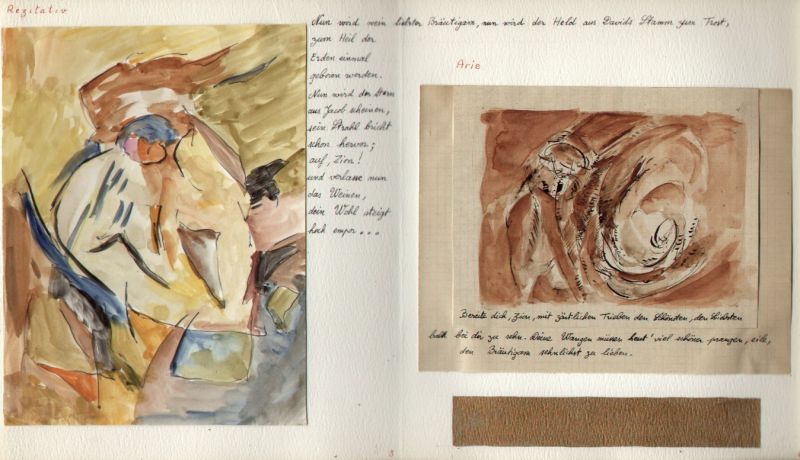 Rezitativ
Nun wird mein liebster Bräutigam, nun wird der Held aus Davids Stamm zum Trost,
zum Heil der
Erden einmal
geboren werden.
Nun wird der Stern
aus Jacob scheinen,
sein Strahl bricht
schon hervor;
auf, Zion!
und verlasse nun
das Weinen,
dein Wohl steigt
hoch empor...
Arie
Bereite dich, Zion, mit zärtlichen Trieben den Schönsten, den Liebsten
bald bei dir zu sehn. Deine Wangen müssen heut' viel schöner prangen, eile,
den Bräutigam sehnlichst zu lieben.